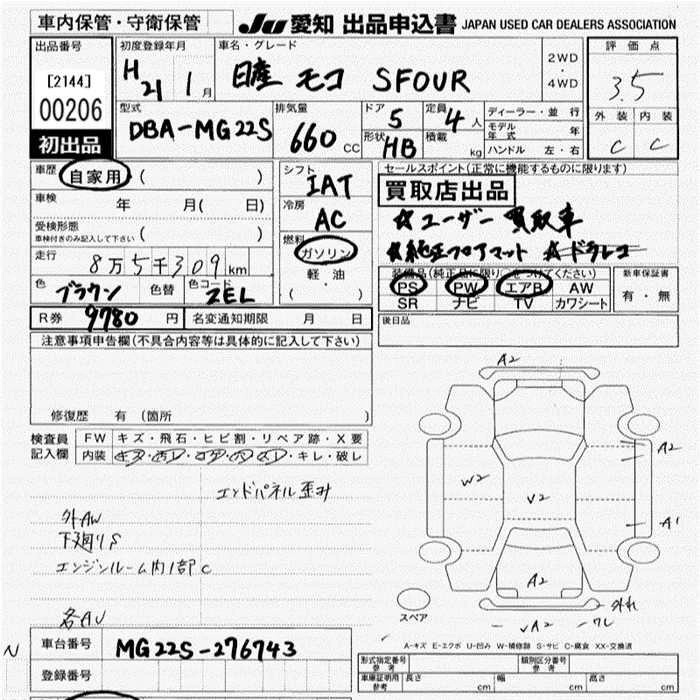 車内保管・守衛保管
JU 愛知 出品申込書 JAPAN USED CAR DEALERS ASSOCIATION
出品番号
[2144]
00206
初出品
初度登録年月
H21 1月
車名・グレード
日産 モコ SFOUR
2WD
・
4WD
評価点
3.5
外装 内装
C C
型式
DBA-MG22S
排気量
660 CC
ドア
5
定員
4人
形状
HB
積載
kg
ディーラー・並行
モデル年式 年
ハンドル 左・右
車歴
自家用 ( )
車検
年 月( 日)
受検形態
車検付きのみ記入して下さい ( )
走行
8万5千309km
色
ブラウン
色替
色コード
ZEL
シフト
IAT
冷房
AC
燃料
ガソリン
軽油
( )
セールスポイント(正常に機能するものに限ります)
買取店出品
☆ユーザー買取車
★純正フロアマット ☆ドラレコ
装備品(純正品に限り○をつけてください)
PS PW エアB AW
SR ナビ TV カワシート
新車保証書
有・無
R券 9780円
名変通知期限 月 日
後日品
注意事項申告欄(不具合内容等は具体的に記入して下さい)
修復歴 有 (箇所 )
検査員記入欄
FW キズ・飛石・ヒビ割・リペア跡・X要
内装 キズ・汚レ・コゲ・穴・スレ・キレ・破レ
エンドパネル歪み
外AW
下廻りS
エンジンルーム内1部C
各AU
A2
A2
W2
V2
A1
A2
外れ
VA2
ワレ
スペア
A-キズ E-エクボ U-凹み W-補修跡 S-サビ C-腐食 XX-交換済
N
車台番号
MG22S-276743
登録番号
型式指定番号
参考
類別区分番号
参考
車庫証明用
参考
長さ cm
幅 cm
高さ cm